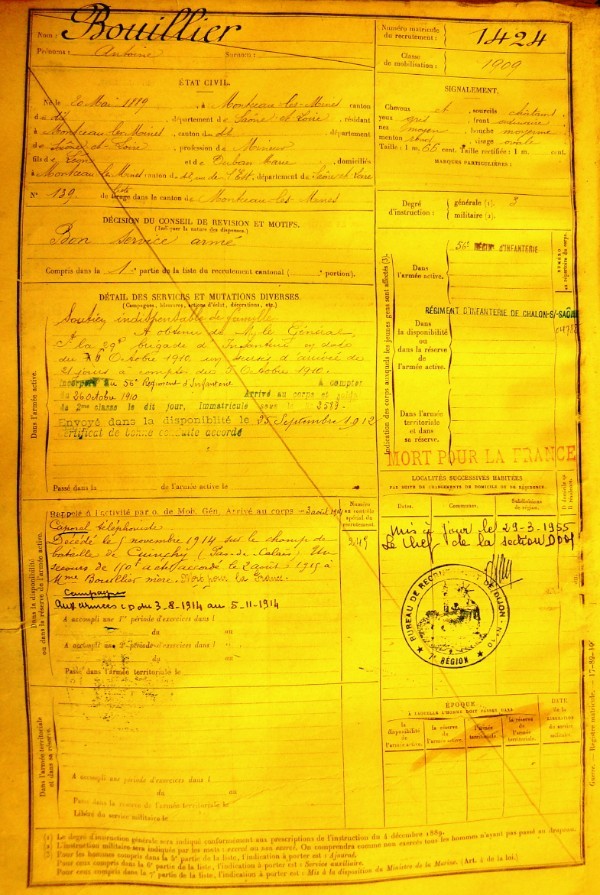 Nom : Bouillier
Prénoms : Antoine Surnom :
Numéro matricule du recrutement : 1424
Classe de mobilisation : 1909
ÉTAT CIVIL.
Né le 20 Mai 1889, à Montceau-les-Mines, canton
du dit, département de Saône-et-Loire, résidant
à Montceau-les-Mines, canton du dit, département
de Saône-et-Loire, profession de Mineur
fils de et de Marie, domiciliés
à Montceau-les-Mines, canton du dit, département de Saône-et-Loire
N° 139 de tirage dans le canton de Montceau-les-Mines
SIGNALEMENT.
Cheveux et sourcils châtains
yeux gris, front ordinaire
nez moyen, bouche moyenne
menton rond, visage ovale
Taille : 1 m. 66 cent. Taille rectifiée : 1 m. cent.
MARQUES PARTICULIÈRES :
Degré d'instruction : générale (1). 3
militaire (2).
DÉCISION DU CONSEIL DE REVISION ET MOTIFS.
(Indiquer la nature des dispenses)
Bon service armé
Compris dans la 1e partie de la liste du recrutement cantonal ( portion).
DÉTAIL DES SERVICES ET MUTATIONS DIVERSES.
(Campagnes, blessures, actions d'éclat, décorations, etc.)
Soutien indispensable de famille
A obtenu de M. le Général
de la 29e brigade d'Infanterie en date
du 6 Octobre 1910 un sursis d'arrivée de
21 jours à compter du 5 Octobre 1910.
Incorporé au 56e Régiment d'Infanterie à compter
du 26 Octobre 1910 Arrivé au corps et soldat
de 2me classe le dit jour, immatriculé sous le n° 3587.
Envoyé dans la disponibilité le 25 Septembre 1912
Certificat de bonne conduite accordé
Passé dans l de l'armée active le
Dans l'armée active.
Indication des corps auxquels les jeunes gens sont affectés (3).
Dans l'armée active. 56e RÉGt D'INFANTERIE
Dans la disponibilité ou dans la réserve de l'armée active.
RÉGIMENT D'INFANTERIE DE CHALON-S/-SAÔNE
Dans l'armée territoriale et dans sa réserve.
MORT POUR LA FRANCE
LOCALITÉS SUCCESSIVES HABITÉES
PAR SUITE DE CHANGEMENTS DE DOMICILE OU DE RÉSIDENCE.
Dates. Communes. Subdivisions de région.
D domicile ou R résidence.
Numéro au contrôle spécial du recrutement.
Rappelé à l'activité par o. de Mob. Gén. Arrivé au corps
Caporal téléphoniste
Décédé le 5 novembre 1914 sur le champ de
bataille de Cuinchy (Pas-de-Calais) Un
secours de 150f a été accordé le 2 août 1915 à
Mme Bouillier mère. Mort pour la France.
Campagnes
Aux armées CD du 3-8-1914 au 5-11-1914
Mis à jour le 29-3-1965
Le Chef de la section
BUREAU DE RECRUTEMENT
RÉGION
A accompli une 1re période d'exercices dans l
du au
A accompli une 2e période d'exercices dans l
du au
Passé dans l'armée territoriale le
Dans la disponibilité ou dans la réserve de l'armée active.
ÉPOQUE
À LAQUELLE L'HOMME DOIT PASSER DANS
la disponibilité de l'armée active.
la réserve de l'armée active.
l'armée territoriale.
la réserve de l'armée territoriale.
DATE de la libération du service militaire.
Dans l'armée territoriale et dans sa réserve.
A accompli une période d'exercices dans l
du au
Passé dans la réserve de l'armée territoriale le
Libéré du service militaire le
(1) Le degré d'instruction générale sera indiqué conformément aux prescriptions de l'instruction du 4 décembre 1889.
(2) L'instruction militaire sera indiquée par les mots : exercé ou non exercé. On comprendra comme non exercés tous les hommes n'ayant pas passé au drapeau.
(3) Pour les hommes compris dans la 5e partie de la liste, l'indication à porter est : Ajourné.
Pour ceux compris dans la 6e partie de la liste, l'indication à porter est : Service auxiliaire.
Pour ceux compris dans la 7e partie de la liste, l'indication à porter est : Mis à la disposition du Ministre de la Marine. (Art. 4 de la loi.)
Guerre. — Registre matricule.